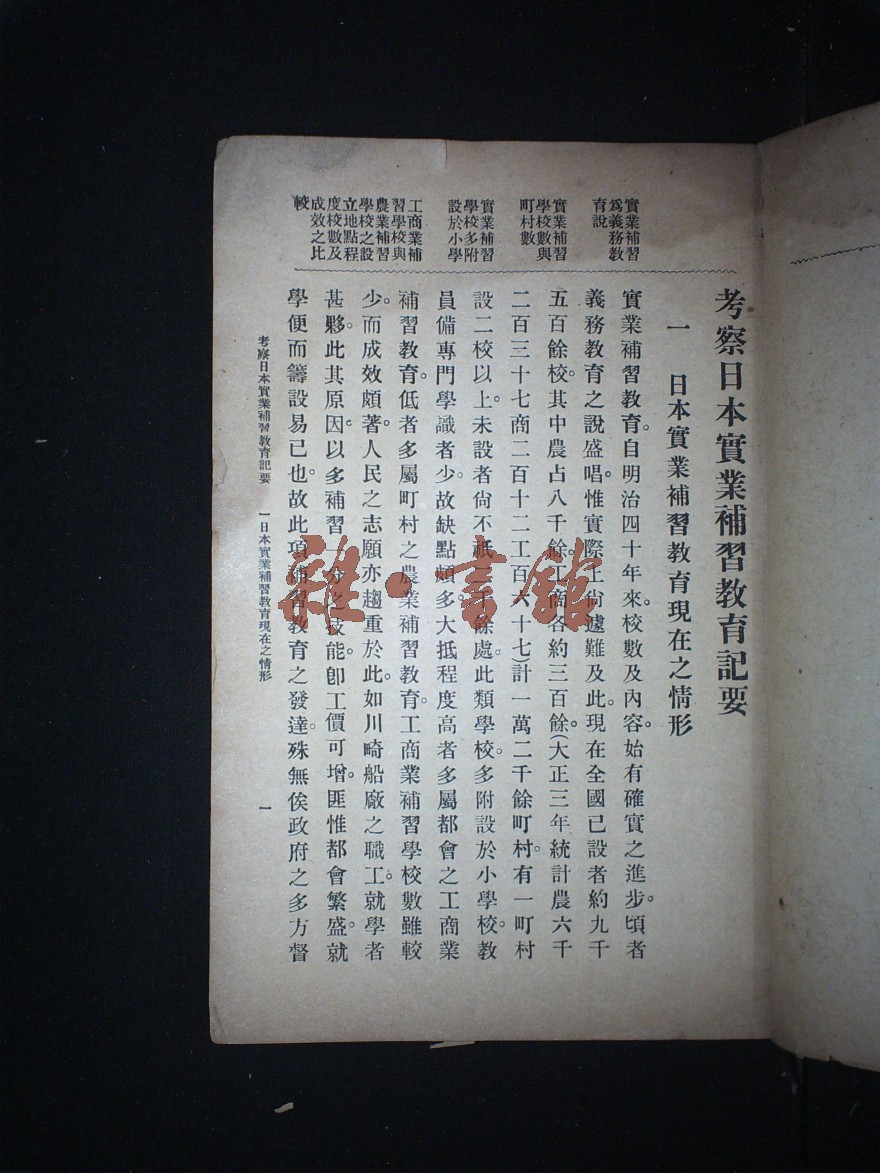 考察日本實業補習教育記要
一　日本實業補習教育現在之情形
實業補習教育。自明治四十年來。校數及內容。始有確實之進步。頃者
義務教育之說盛唱。惟實際上尙遽難及此。現在全國已設者約九千
五百餘校。其中農占八千餘。工商各約三百餘。(大正三年統計農六千
二百三十七商二百十二工百六十七)計一萬二千餘町村。有一町村
設二校以上。未設者尙不祇三千餘處。此類學校。多附設於小學校。教
員備專門學識者少。故缺點頗多。大抵程度高者多屬都會之工商業
補習教育。低者多屬町村之農業補習教育。工商業補習學校數雖較
少。而成效頗著。人民之志願亦趨重於此。如川崎船廠之職工。就學者
甚夥。此其原因。以多補習一分之技能。卽工價可增。匪惟都會繁盛。就
學便而籌設易已也。故此項補習教育之發達。殊無俟政府之多方督
實業補習
爲義務教
育說
實業補習
學校數與
町村數
實業補習
學校多附
設於小學
工商業補
習學校與
農業補習
學校之設
立地點程
度校數及
成效之比
較
考察日本實業補習教育記要　一日本實業補習教育現在之情形
一
雜·書館